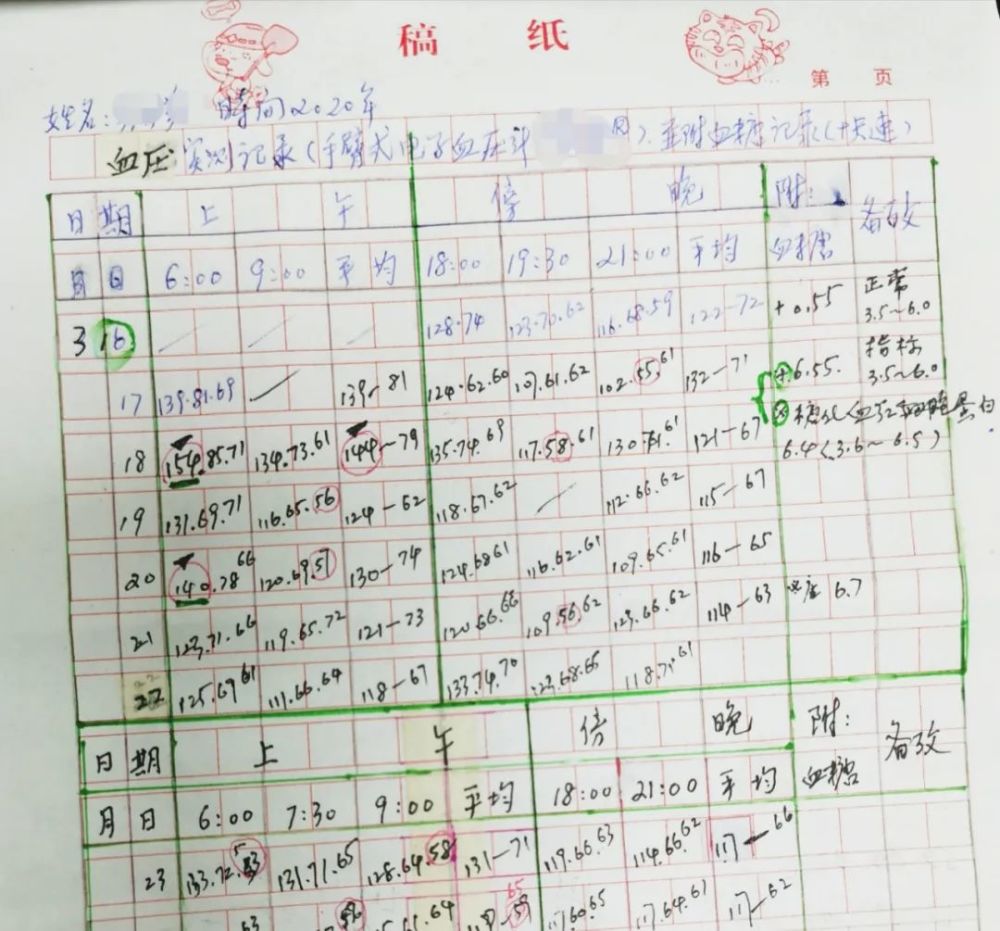 稿 纸
第 页
姓名: 時间2020年
血压实测记录(手臂式电子血压计 ).並附血糖记录(十天連)
日期 上 午 傍 晚 附: 备攷
月 日 6:00 9:00 平均 18:00 19:30 21:00 平均 血糖
3 16 / / / 128.74 123.70.62 116.68.59 122-72 + 0.55 正常 3.5~6.0
17 139.81.69 / 139-81 124.62.60 107.61.62 102.55.61 132-71 +6.55. 指标 3.5~6.0
18 154.85.71 134.73.61 144-79 135.74.69 117.58.61 130.71.61 121-67 糖化血红 蛋白 6.4(3.6~6.5)
19 131.69.71 116.65.56 124-62 118.67.62 / 112.66.62 115-67
20 140.78.66 120.69.57 130-74 124.68.61 116.62.61 109.65.61 116-65
21 123.71.66 119.65.72 121-73 120.66.66 109.56.62 123.66.62 114-63 6.7
22 125.67.61 111.66.64 118-67 133.74.70 123.68.65 118.71.61
日期 上 午 傍 晚 附: 备攷
月 日 6:00 7:30 9:00 平均 18:00 21:00 平均 血糖
23 133.72. 131.71.65 128.64.58 131-71 119.66.63 114.66.62 117-66
63 56 64 65 117.60.65 117.64.61 117-62